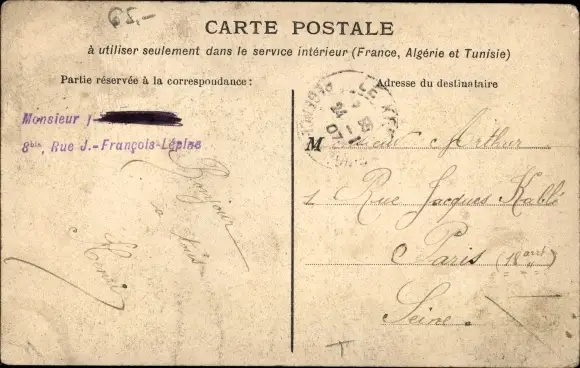 65,-
CARTE POSTALE
à utiliser seulement dans le service intérieur (France, Algérie et Tunisie)
Partie réservée à la correspondance :
Adresse du destinataire
Monsieur
8bis, Rue J.-François-Lépine
Bonjour
à
Monsieur Arthur
1 Rue Jacques Kablé
Paris (18 arrt)
Seine
T